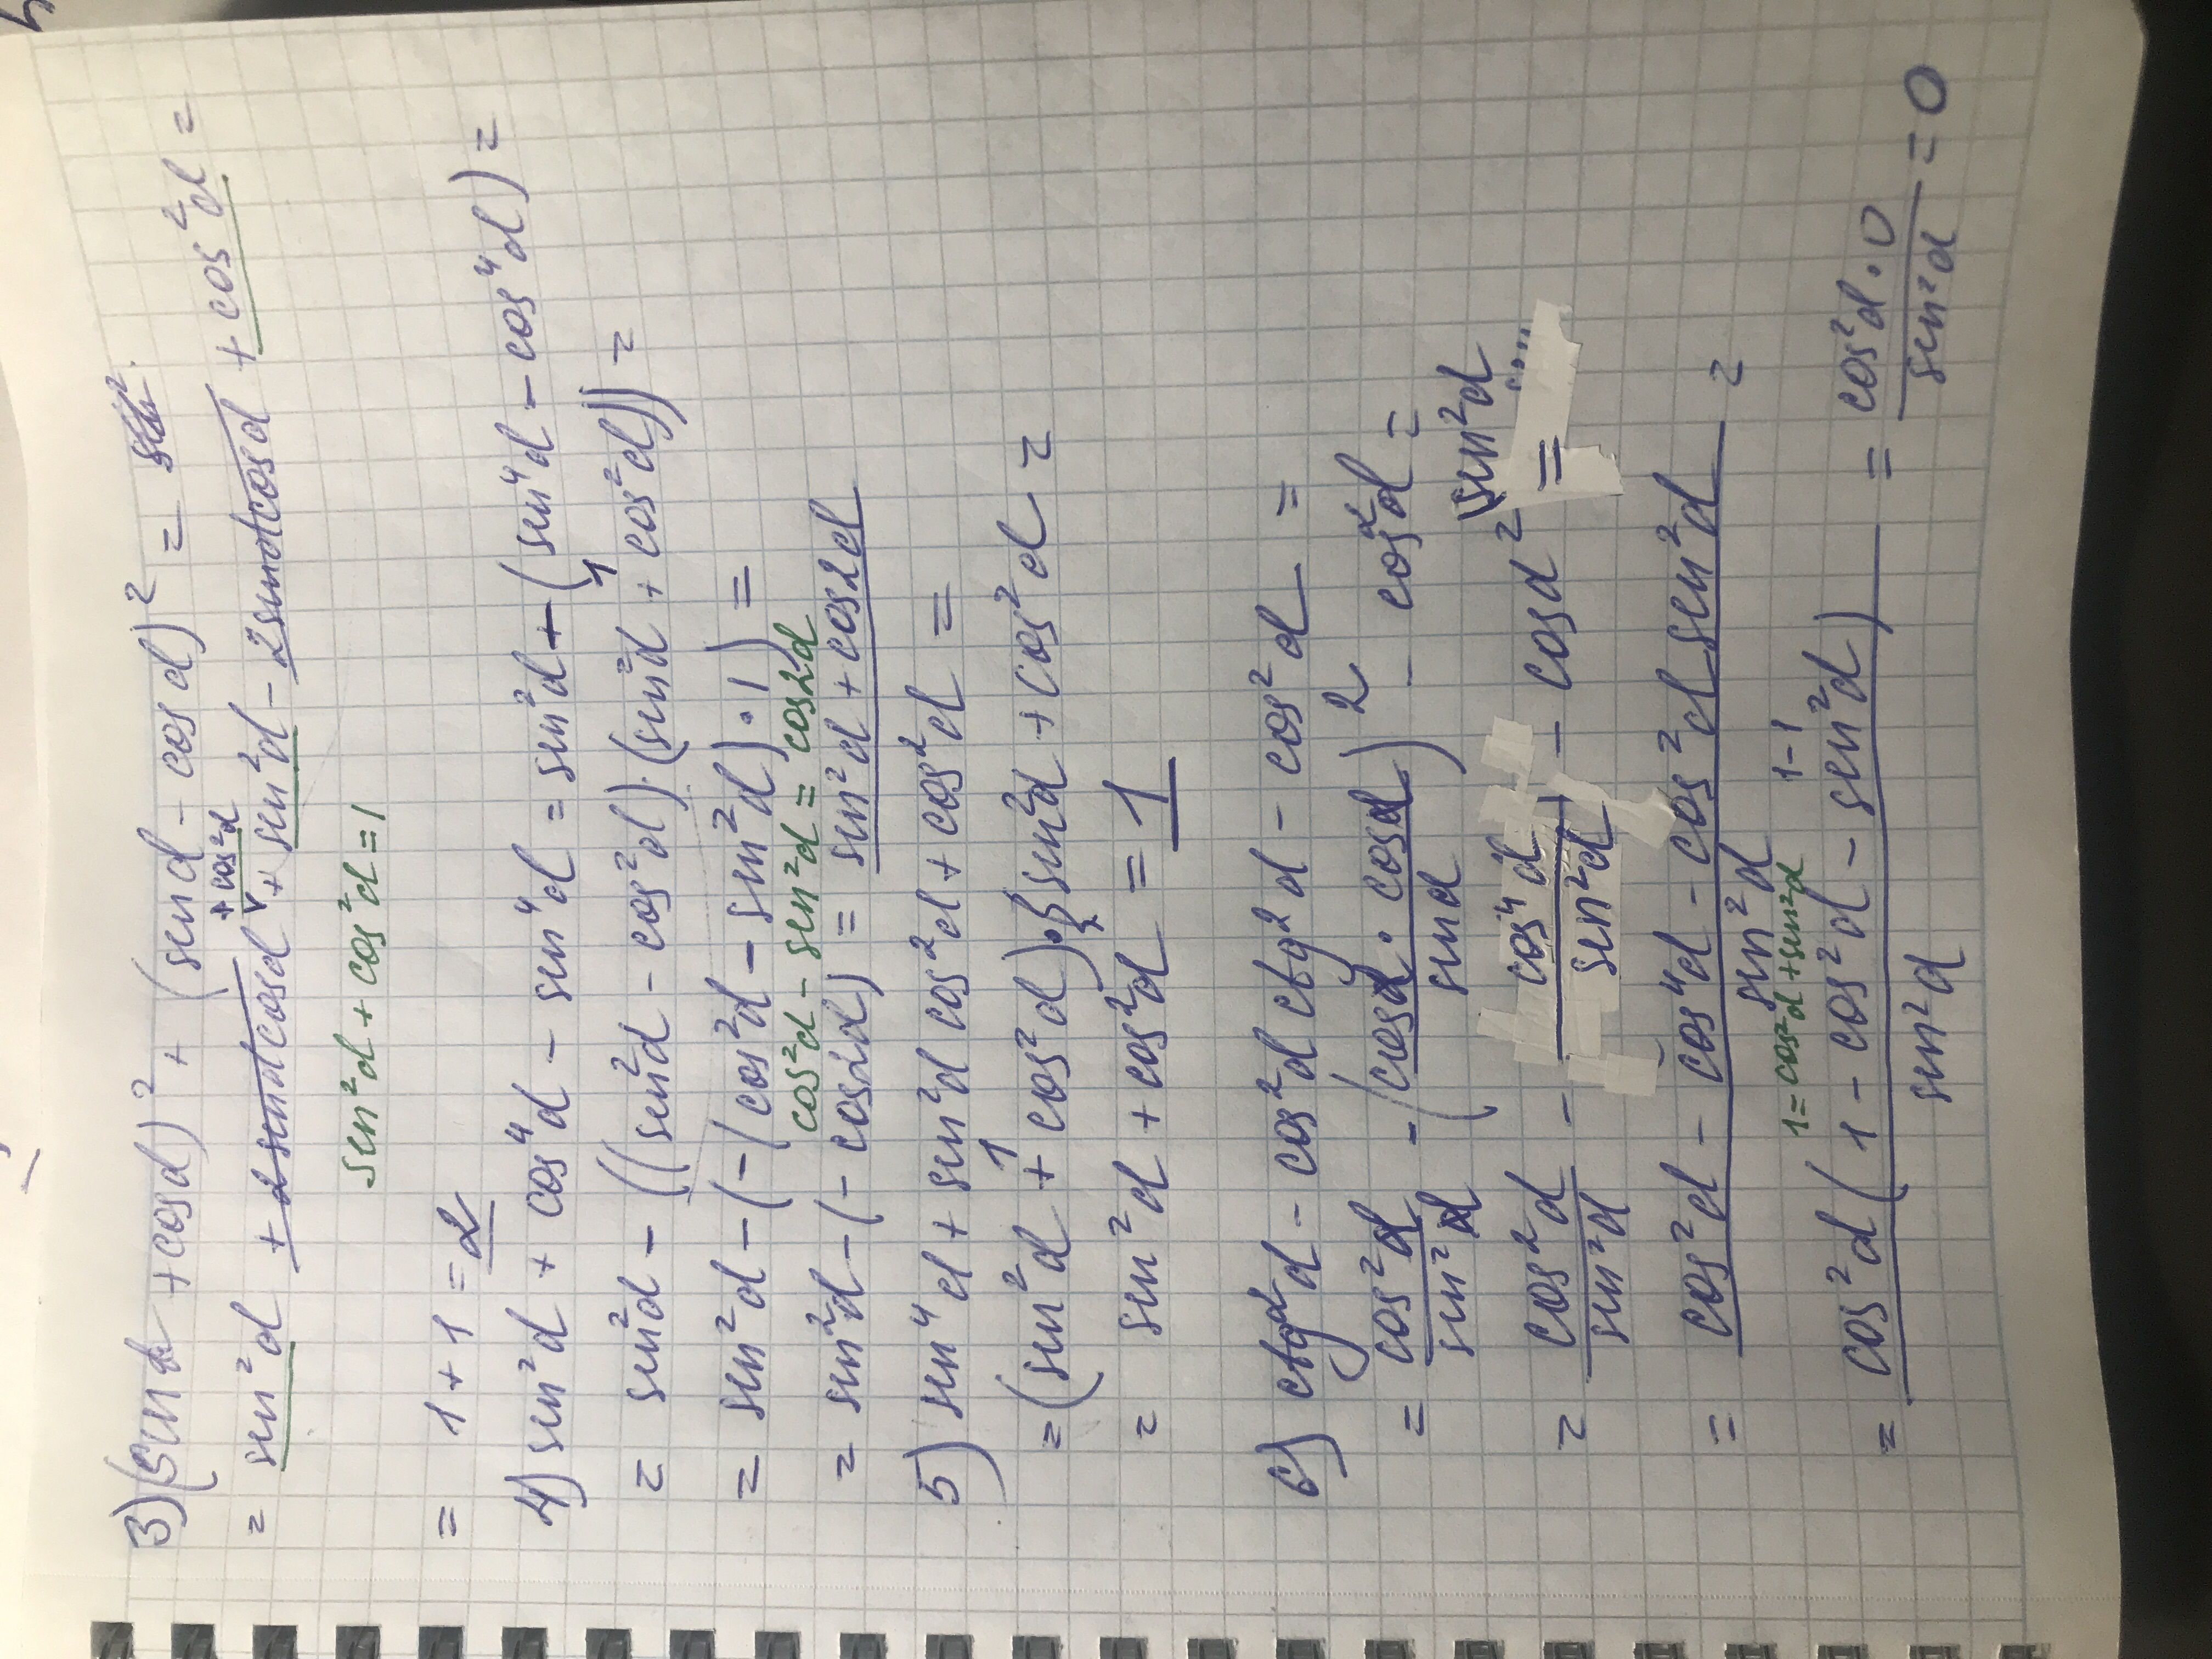 3) (sin α + cos α)² + (sin α - cos α)² =
= sin²α + 2 sin α cos α + cos²α + sin²α - 2 sin α cos α + cos²α =
sin²α + cos²α = 1
= 1 + 1 = 2
4) sin²α + cos⁴α - sin⁴α = sin²α - (sin⁴α - cos⁴α) =
= sin²α - ((sin²α - cos²α)·(sin²α + cos²α)) =
1
= sin²α - (-(cos²α - sin²α)·1) =
cos²α - sin²α = cos2α
= sin²α - (-cos2α) = sin²α + cos2α
5) sin⁴α + sin²α cos²α + cos²α =
= (sin²α + cos²α)·sin²α + cos²α =
1
= sin²α + cos²α = 1
6) ctg²α - cos²α ctg²α - cos²α =
= cos²α/sin²α - (cosα · cosα/sinα)² - cos²α =
= cos²α/sin²α - cos⁴α/sin²α - cosα² \sin²α =
= cos²α - cos⁴α - cos²α sin²α / sin²α =
1 = cos²α + sin²α 1-1
= cos²α (1 - cos²α - sin²α) / sin²α = cos²α·0 / sin²α = 0